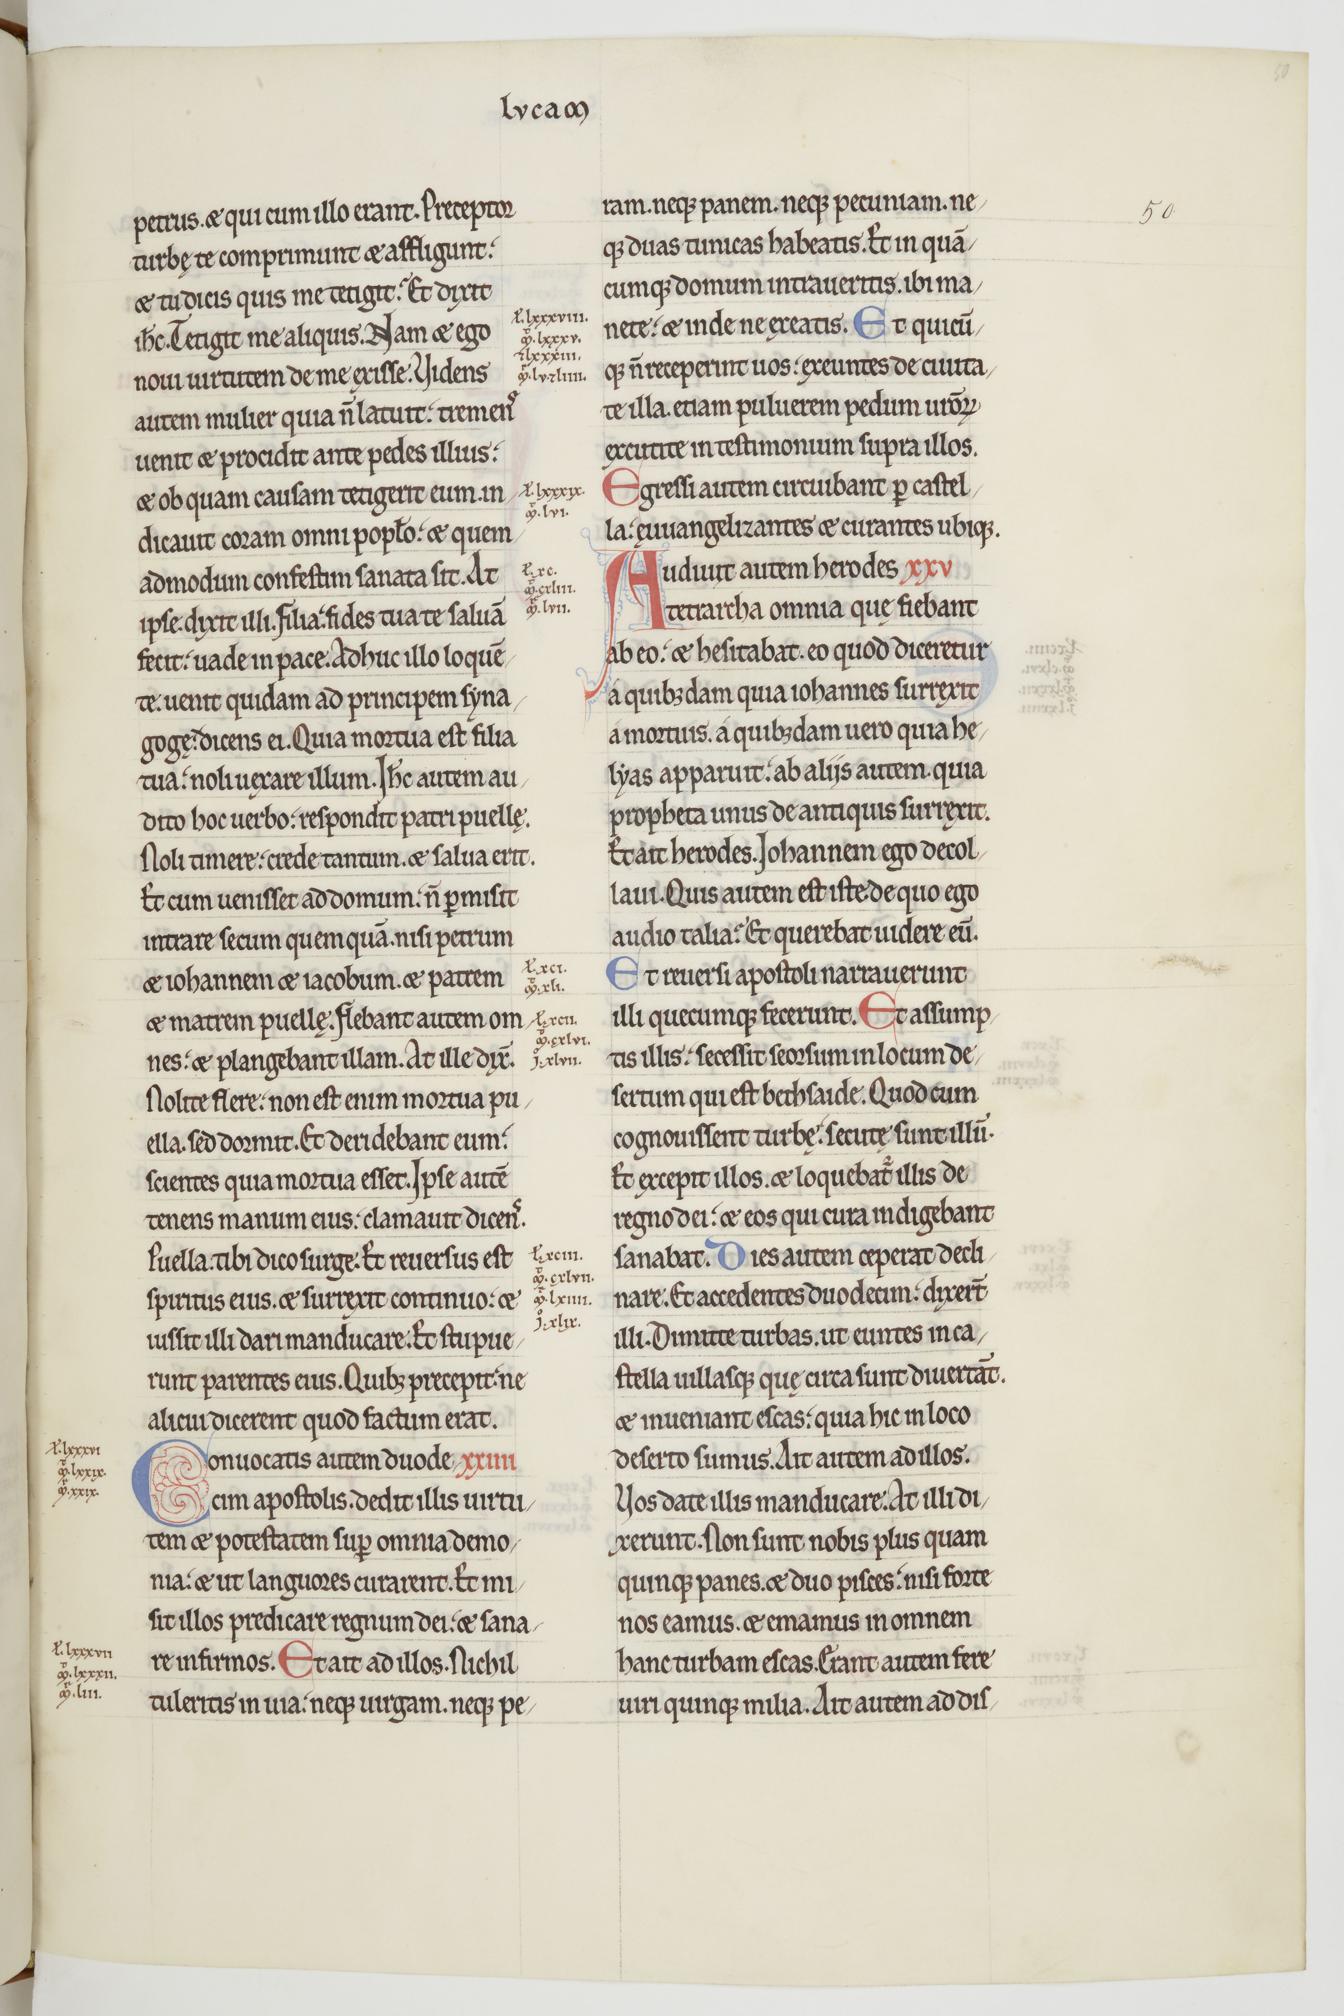 lvcam
50
petrus. & qui cum illo erant. Preceptor
turbę te comprimunt & affligunt:
& tu dicis quis me tetigit? Et dixit
ihc. Tetigit me aliquis. Nam & ego
noui uirtutem de me exisse. Videns
autem mulier quia n̄ latuit: tremens
uenit & procidit ante pedes illius:
& ob quam causam tetigerit eum. in
dicauit coram omni poplo: & quem
admodum confestim sanata sit. At
ipse. dixit illi. Filia: fides tua te saluā
fecit: uade in pace. Adhuc illo loquē
te. uenit quidam ad principem syna
gogę: dicens ei. Quia mortua est filia
tua: noli uexare illum. Ihc autem au
dito hoc uerbo: respondit patri puellę.
Noli timere: crede tantum. & salua erit.
Et cum uenisset ad domum: n̄ ꝑmisit
intrare secum quem quā. nisi petrum
& iohannem & iacobum. & patrem
& matrem puellę. Flebant autem om
nes: & plangebant illam. At ille dix̄.
Nolite flere: non est enim mortua pu
ella. sed dormit. Et deridebant eum:
scientes quia mortua esset. Ipse autē
tenens manum eius: clamauit dicens.
Puella: tibi dico surge. Et reuersus est
spiritus eius. & surrexit continuo: &
iussit illi dari manducare. Et stupue
runt parentes eius. Quibꝫ precepit: ne
alicui dicerent quod factum erat.
Conuocatis autem duode xxiiii
cim apostolis. dedit illis uirtu
tem & potestatem suꝑ omnia demo
nia: & ut languores curarent. Et mi
sit illos predicare regnum dei: & sana
re infirmos. Et ait ad illos. Nichil
tuleritis in uia: neqꝫ uirgam. neqꝫ pe
ł. lxxxviii.
ꝙ. lxxxv.
⁊lxxxiii.
ꝙ. lv.⁊liiii.
ł. lxxxix.
ꝙ. lvi.
ł. xc.
ꝙ. cxliii.
ꝙ. lvii.
ł. xci.
ꝙ. xli.
ł. xcii.
ꝙ. cxlvi.
j. xlvii.
ł. xciii.
ꝙ. cxlvii.
ꝙ. lxiiii.
j. xlix.
ł. lxxxvi
ꝙ. lxxix.
ꝙ. xxix.
ł. lxxxvii
ꝙ. lxxxii.
ꝙ. liii.
ram. neqꝫ panem. neqꝫ pecuniam. ne
qꝫ duas tunicas habeatis. Et in quā
cumqꝫ domum intraueritis. ibi ma
nete: & inde ne exeatis. Et quicū
qꝫ n̄ receperint uos: exeuntes de ciuita
te illa. etiam puluerem pedum urōꝝ
excutite in testimonium supra illos.
Egressi autem circuibant ꝑ castel
la: euuangelizantes & curantes ubiqꝫ.
Audiuit autem herodes xxv
tetrarcha omnia quę fiebant
ab eo: & hesitabat. eo quod diceretur
á quibꝫdam quia iohannes surrexit
a mortuis. á quibꝫdam uero quia he
lyas apparuit: ab alijs autem. quia
propheta unus de antiquis surrexit.
Et ait herodes. Iohannem ego decol
laui. Quis autem est iste de quo ego
audio talia? Et querebat uidere eū.
Et reuersi apostoli narrauerunt
illi quecumqꝫ fecerunt. Et assump
tis illis: secessit seorsum in locum de
sertum qui est bethsaide. Quod cum
cognouissent turbę: secutę sunt illū.
Et excepit illos. & loquebatur illis de
regno dei: & eos qui cura indigebant
sanabat. Dies autem ceperat decli
nare. Et accedentes duodecim: dixert̄
illi. Dimitte turbas. ut euntes in ca
stella uillasqꝫ quę circa sunt diuertāt.
& inueniant escas: quia hic in loco
deserto sumus. Ait autem ad illos.
Vos date illis manducare. At illi di
xerunt. Non sunt nobis plus quam
quinqꝫ panes. & duo pisces: nisi forte
nos eamus. & emamus in omnem
hanc turbam escas. Erant autem fere
uiri quinqꝫ milia. Ait autem ad dis